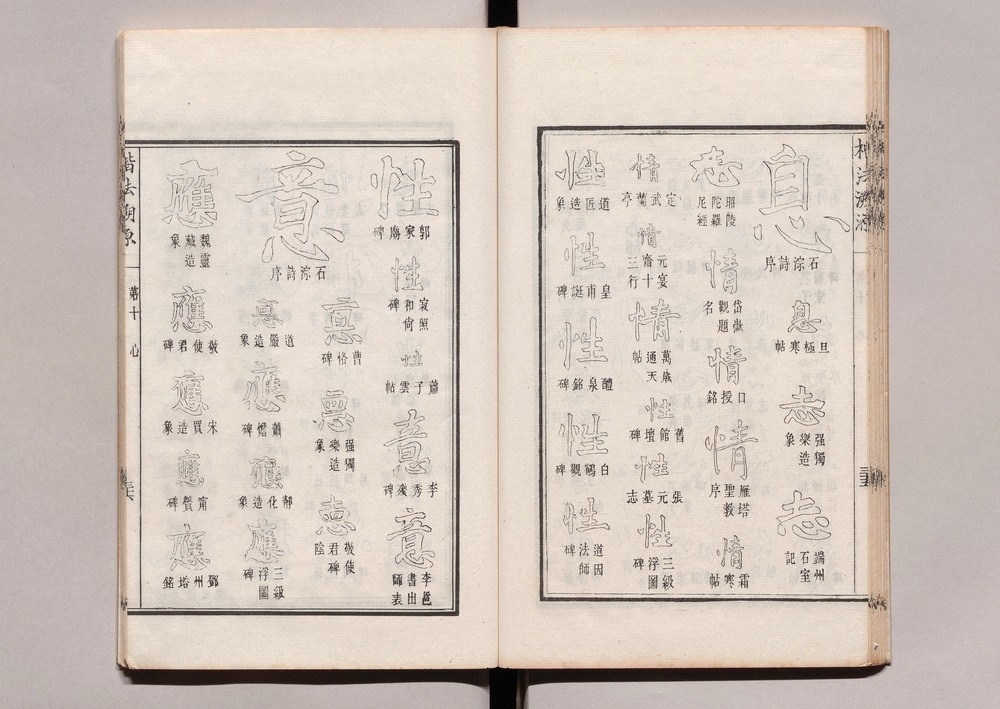 息
石淙詩序
息
旦極寒帖
志
强獨樂造象
志
端州石室記
志
昭陵陀羅尼經
情
岱嶽觀題名
情
口授銘
情
雁塔聖教序
情
霜寒帖
情
定武蘭亭
情
元宴齋十三行
情
萬歲通天帖
性
舊館壇碑
性
張元墓志
性
三級浮圖碑
性
道匠造象
性
皇甫誕碑
性
醴泉銘碑
性
白鶴觀碑
性
道因法師碑
性
郭家廟碑
性
寂照和尚碑
性
蕭子雲帖
意
李秀殘碑
意
李邕書出師表
意
曹恪碑
意
强獨樂造象
意
敬使君碑陰
意
石淙詩序
意
道嚴造象
應
碑
應
靜化造象
應
三級浮圖碑
應
魏靈藏造象
應
敬使君碑
應
宋買造象
應
甯贙碑
應
鄧州塔銘
楷法溯源
第十
心